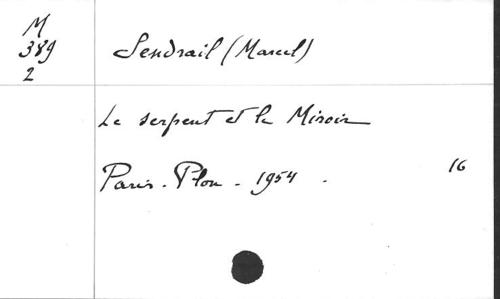 M
389
2
Sendrail (Marcel)
Le serpent et le Miroir
Paris - Plon - 1954 -
16